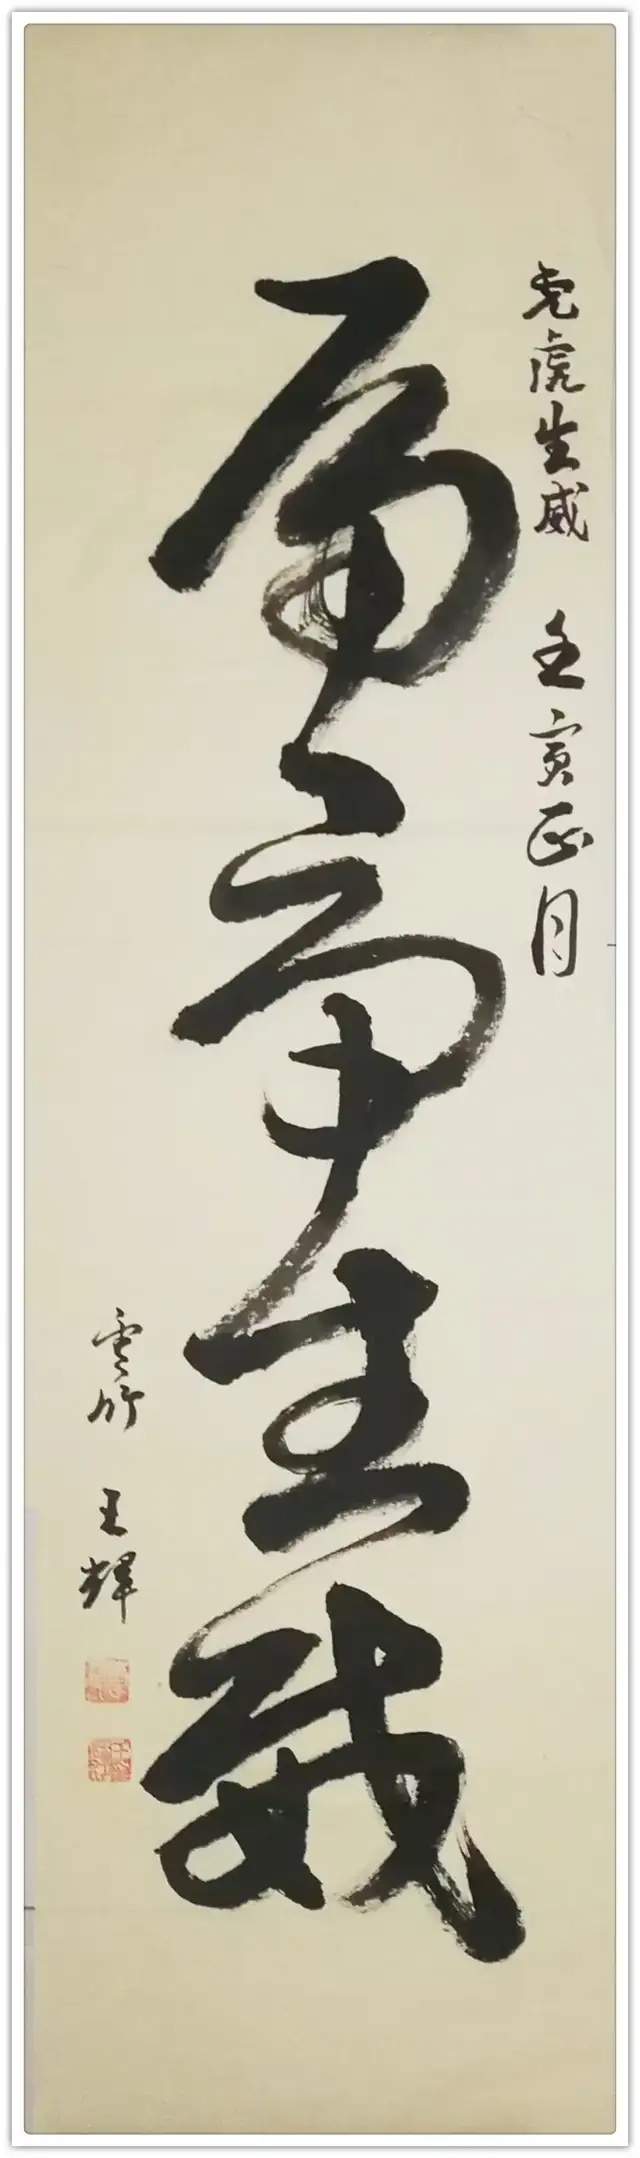 虎虎生威 壬寅正月
虎虎生威
雲竹 王輝